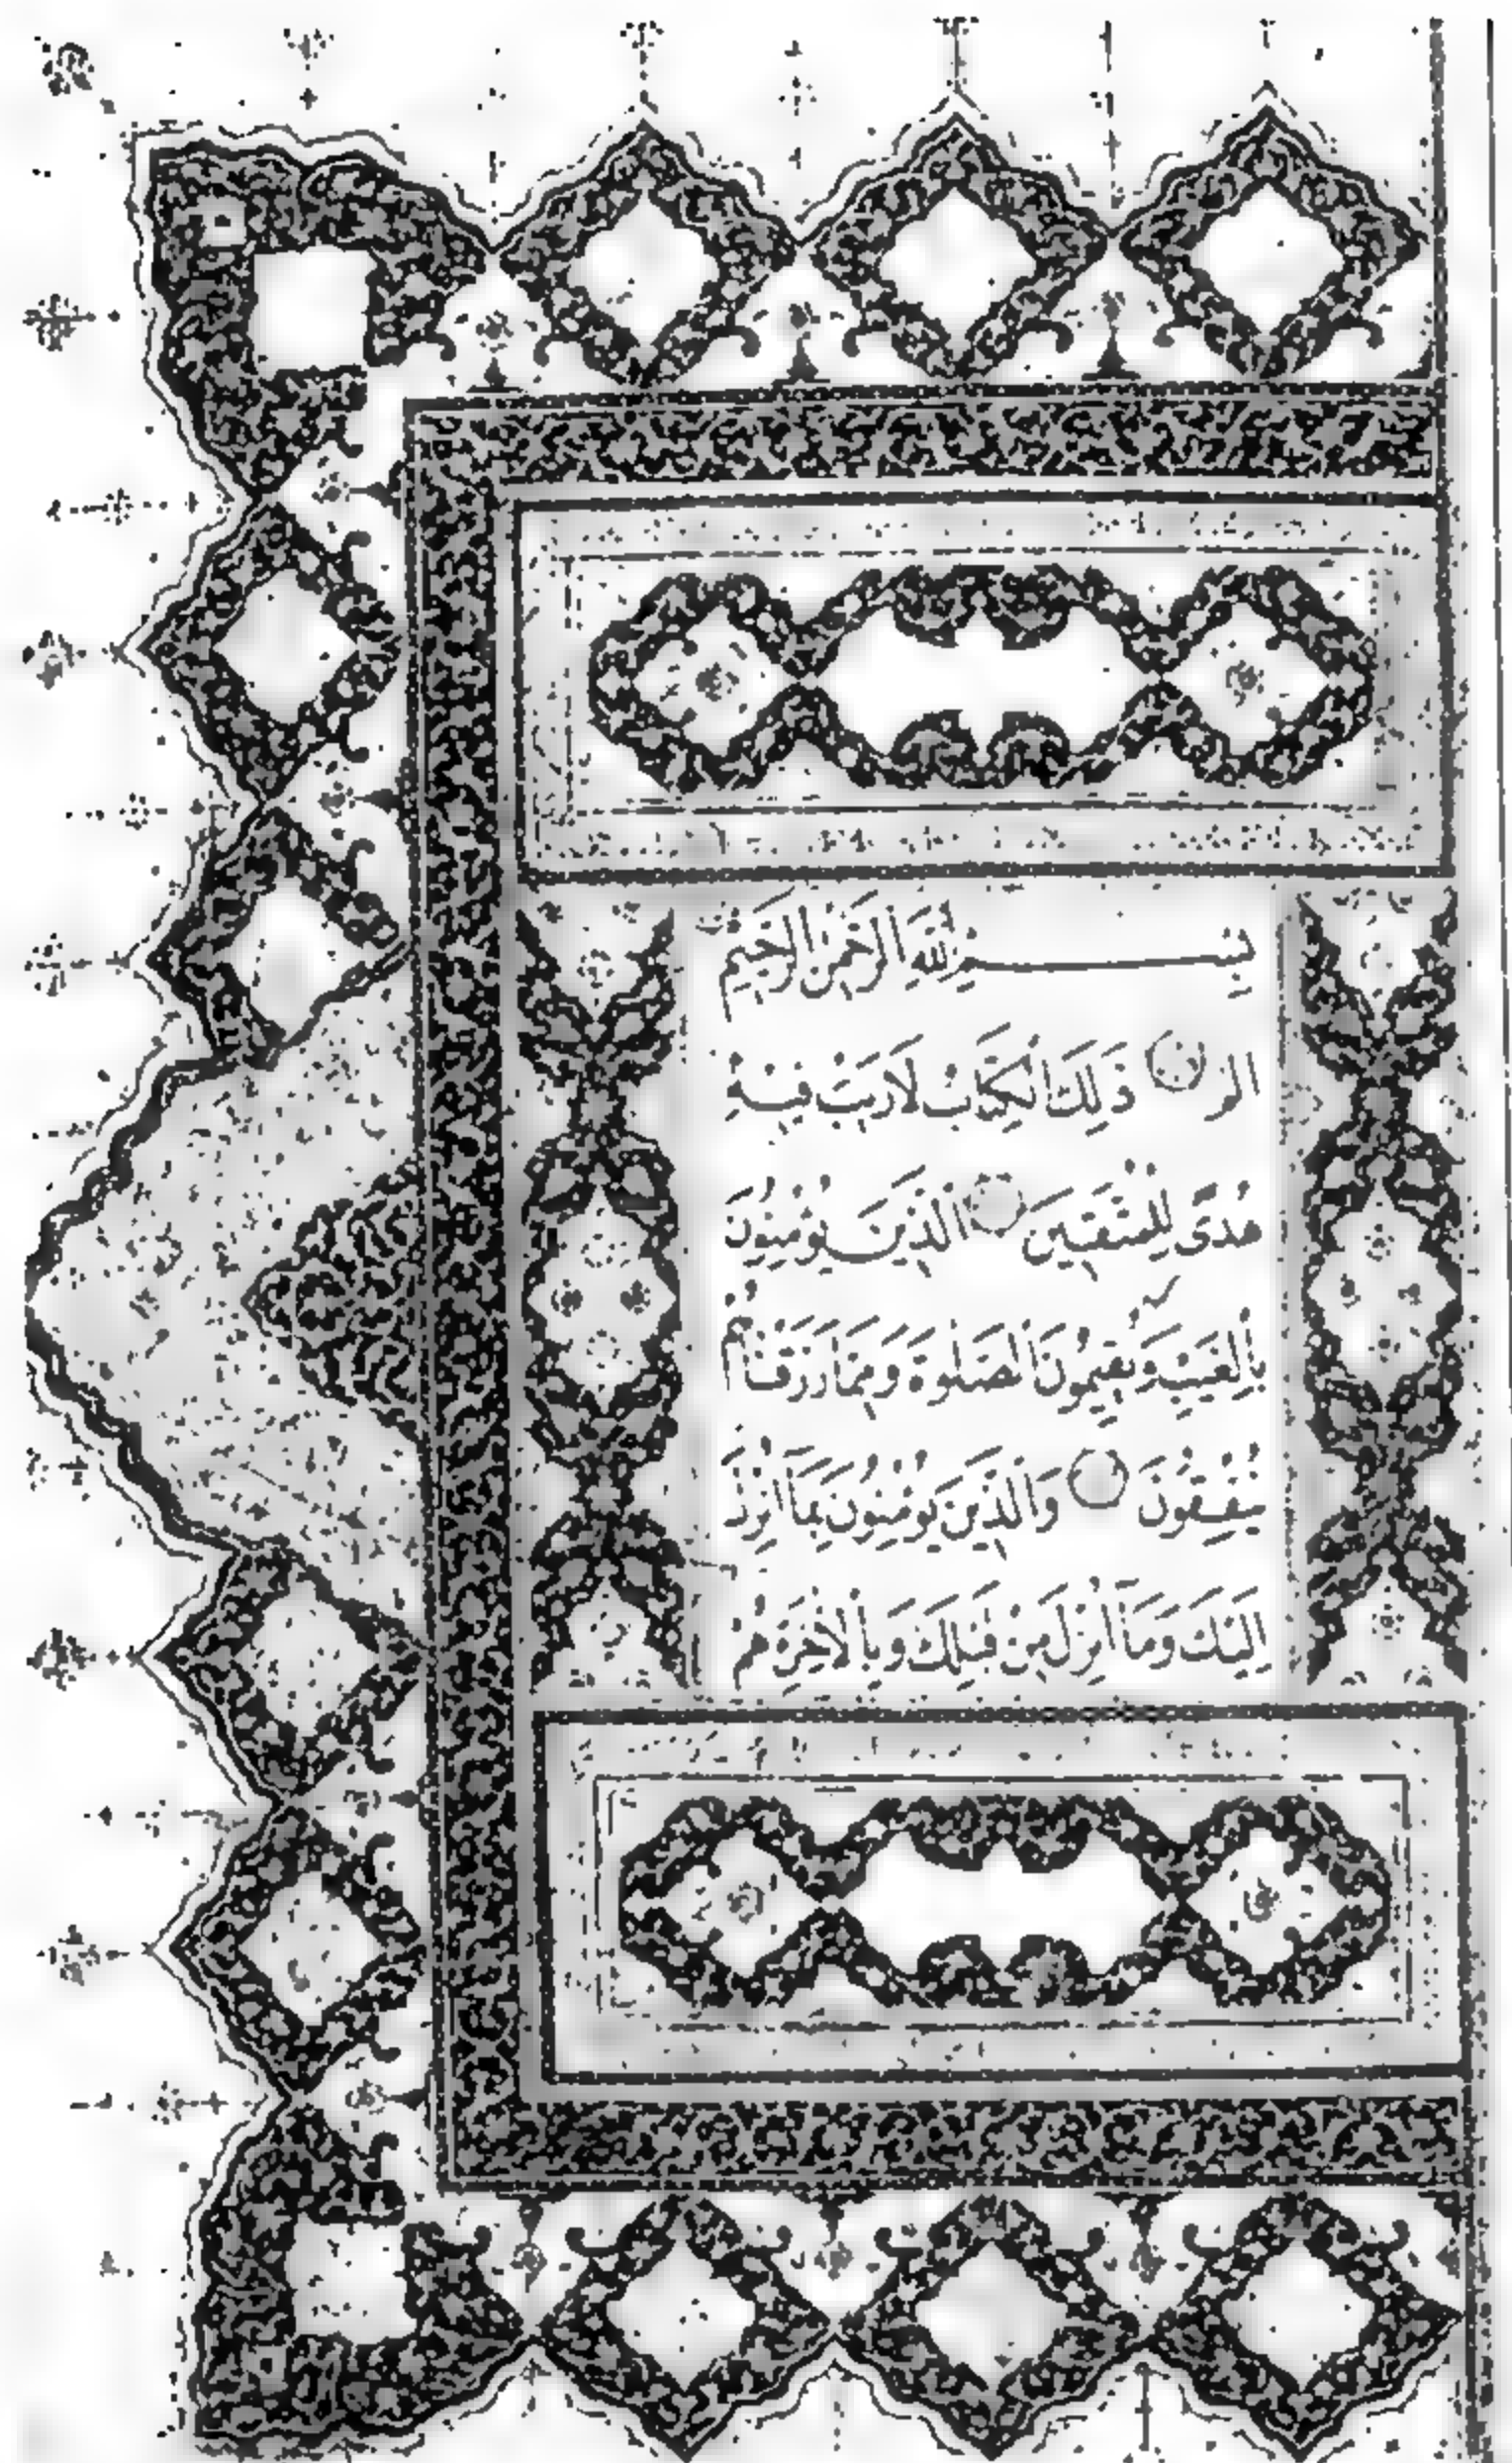 بِسْــــمِ اللّٰهِ الرَّحْمٰنِ الرَّحِيمِ
الم ذَلِكَ الْكِتَابُ لَا رَيْبَ فِيهِ
هُدًى لِلْمُتَّقِينَ الَّذِينَ يُؤْمِنُونَ
بِالْغَيْبِ وَيُقِيمُونَ الصَّلٰوةَ وَمِمَّا رَزَقْنَاهُمْ
يُنْفِقُونَ وَالَّذِينَ يُؤْمِنُونَ بِمَا أُنْزِلَ
إِلَيْكَ وَمَا أُنْزِلَ مِنْ قَبْلِكَ وَبِالْآخِرَةِ هُمْ